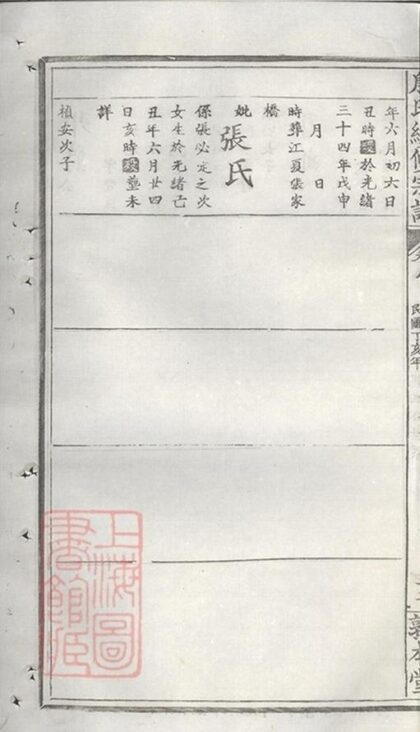 年六月初六日
丑時歿於光緒
三十四年戊申
月 日
時葬江夏張家
橋
妣 張氏
係張必定之次
女生於光緒己
丑年六月廿四
日亥時歿葬未
詳
楨安次子
氏續修宗譜
民國丁亥年
敦本堂
上海圖書館藏